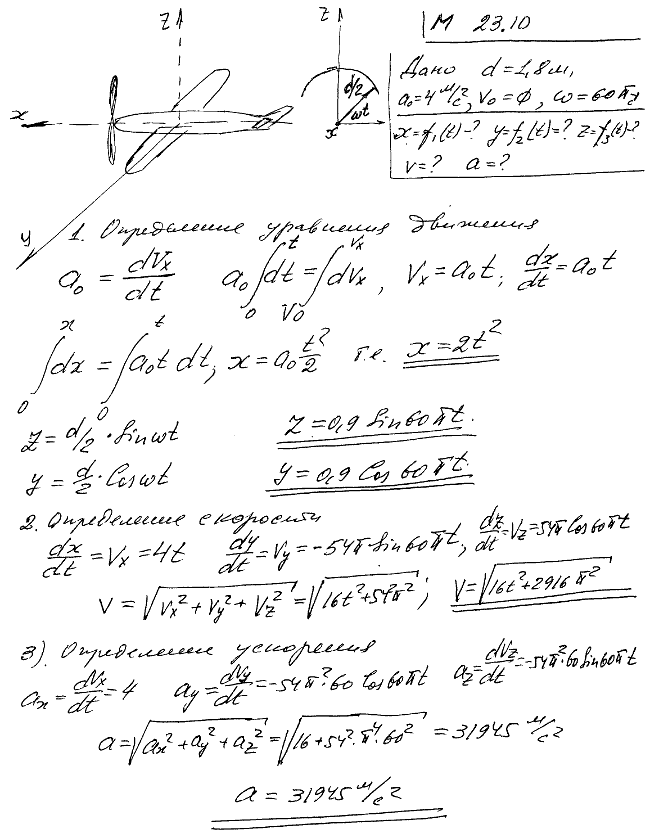 z
z
М 23.10
x
d/2
ωt
x
Дано d=1,8м,
a₀=4 м/с², V₀=0, ω=60π
x=f₁(t)-? y=f₂(t)=? z=f₃(t)-?
v=? a=?
y
1. Определение уравнения движения
a₀ = dVx/dt a₀ ∫₀ᵗ dt = ∫_{V₀}^{Vx} dVx, Vx = a₀t; dx/dt = a₀t
∫₀ˣ dx = ∫₀ᵗ a₀t dt; x = a₀ t²/2 т.е. x = 2t²
z = d/2 · sin ωt z = 0,9 sin 60πt.
y = d/2 · cos ωt y = 0,9 cos 60πt.
2. Определение скорости
dx/dt = Vx = 4t dy/dt = Vy = -54π sin 60πt, dz/dt = Vz = 54π cos 60πt
V = √(Vx² + Vy² + Vz²) = √(16t² + 54²π²); V = √(16t² + 2916π²)
3). Определение ускорения
ax = dVx/dt = 4 ay = dVy/dt = -54π²·60 cos 60πt az = dVz/dt = -54π²·60 sin 60πt
a = √(ax² + ay² + az²) = √(16 + 54²·π⁴·60²) = 31945 м/с²
a = 31945 м/с²